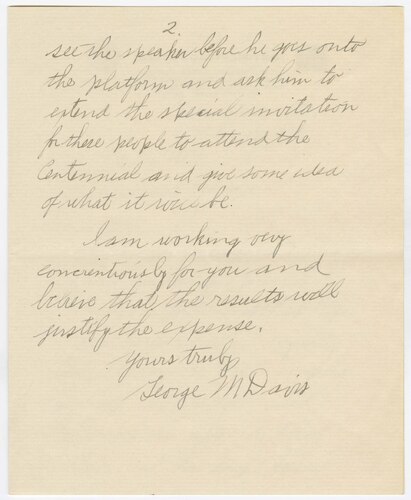 2.
see the speaker before he goes onto
the platform and ask him to
extend the special invitation
for these people to attend the
Centennial and give some idea
of what it will be.
I am working very
concientiously for you and
believe that the results will
justify the expense.
Yours truly,
George M Davis